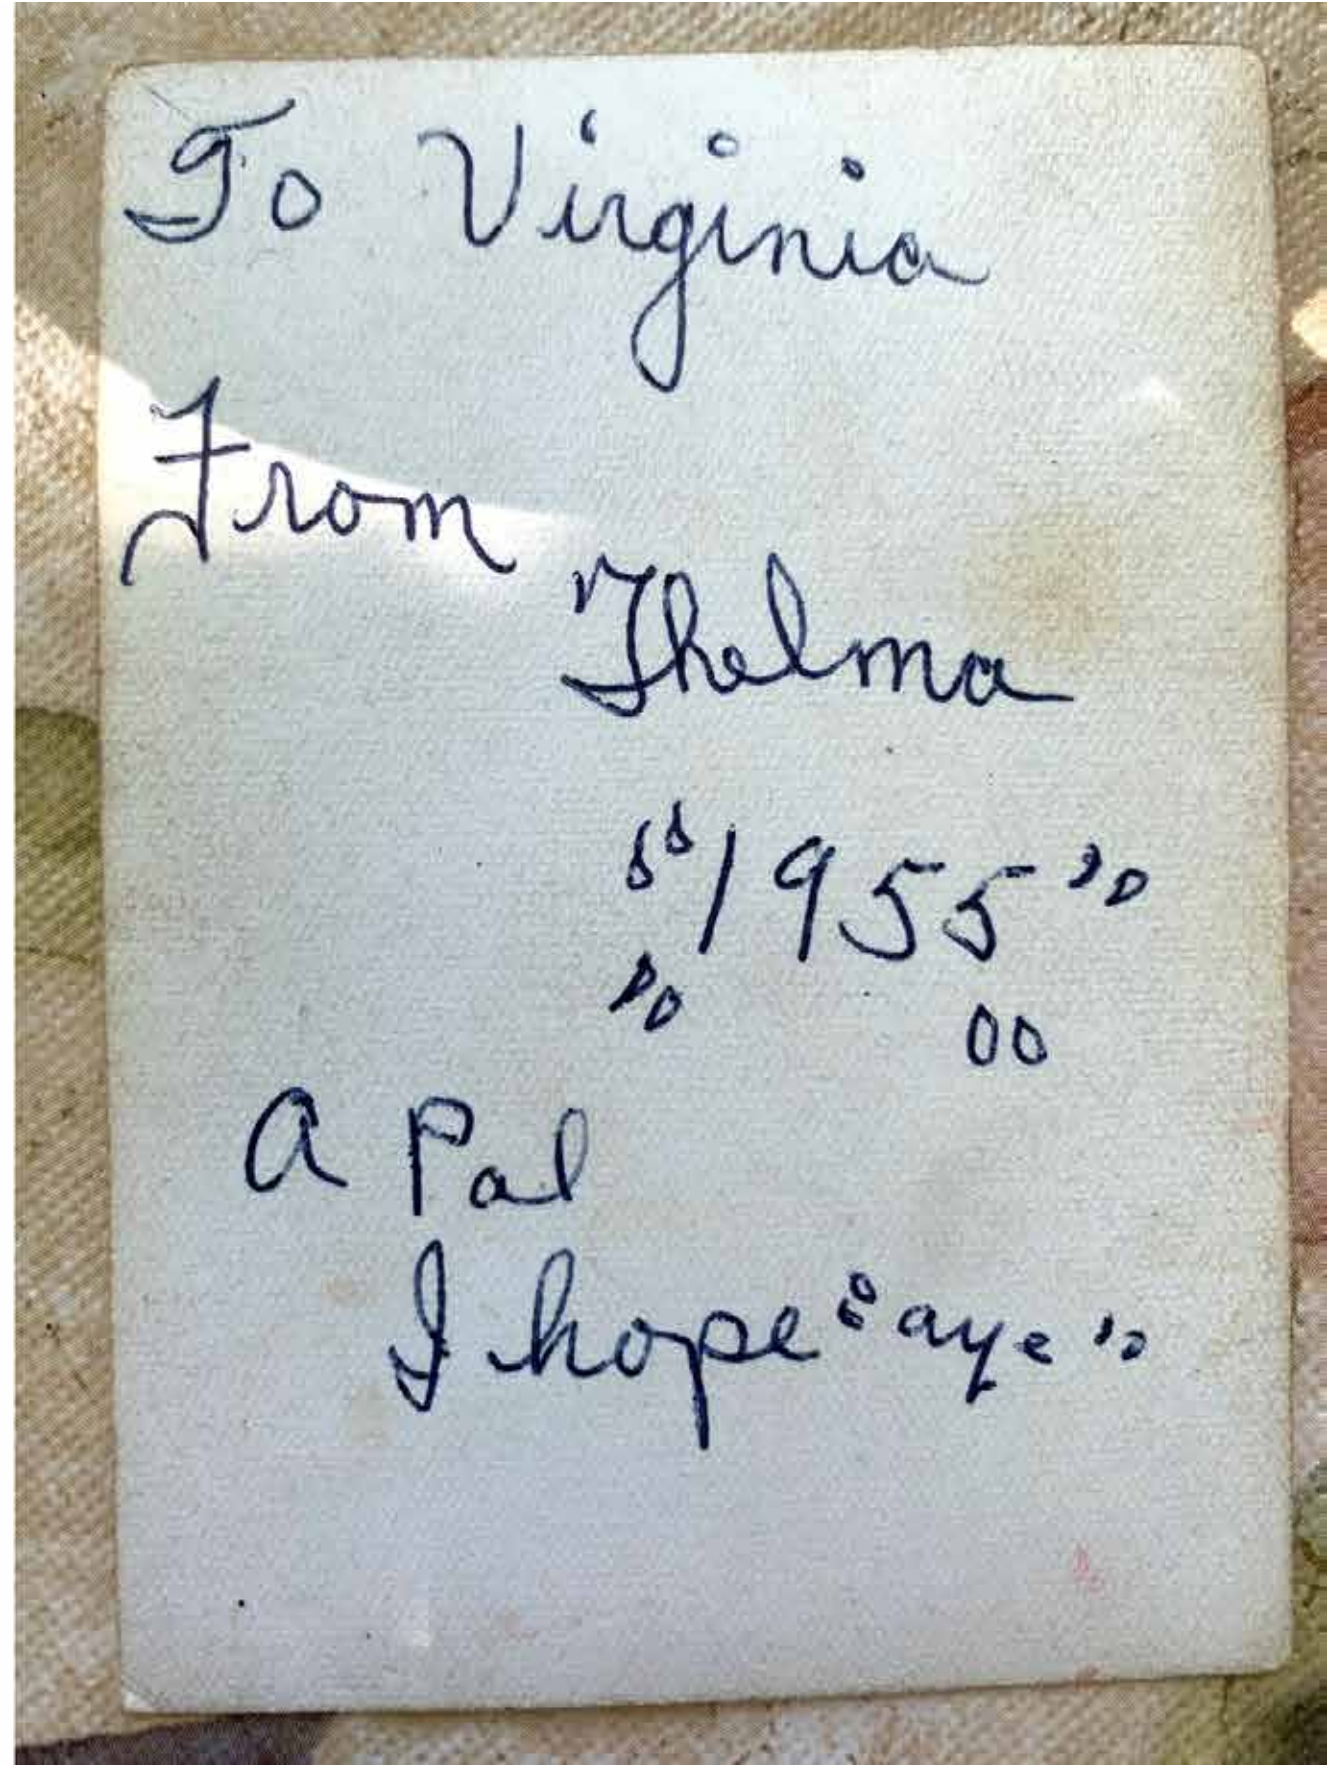 To Virginia
From
Thelma
"1955"
" 00
A Pal
I hope "aye"